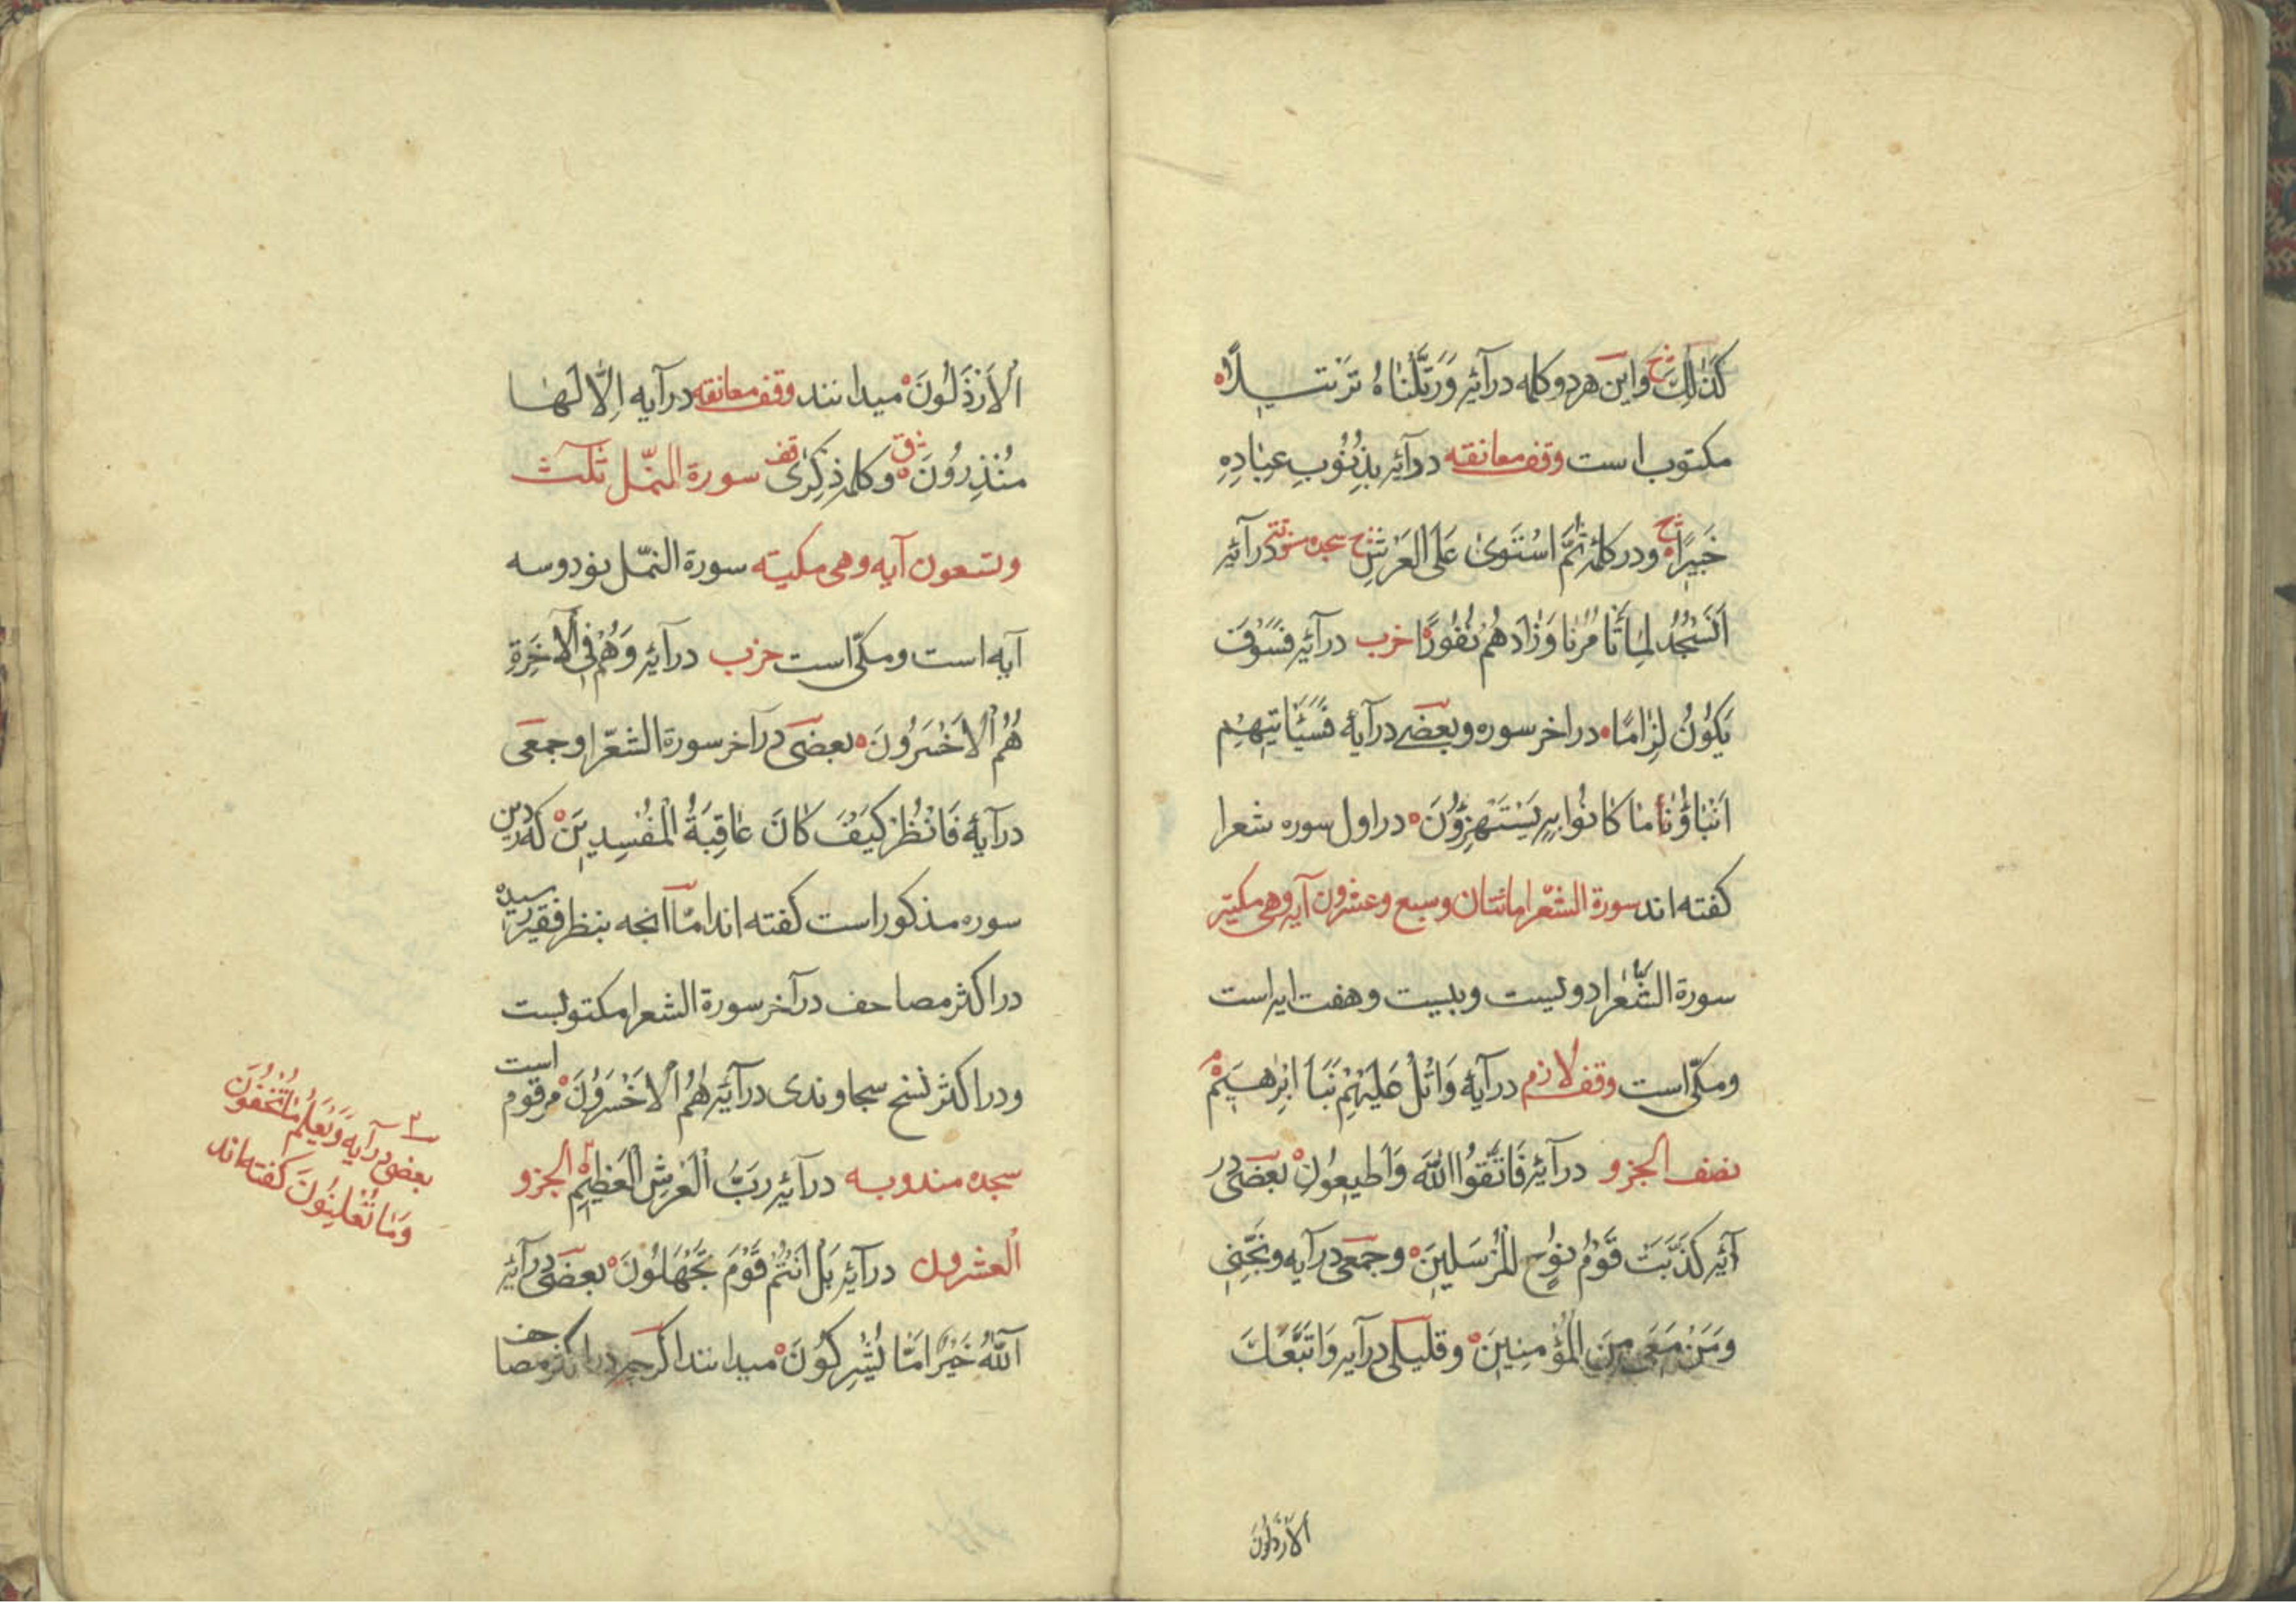 كَذٰلِكَ واین هر دو کلمه در آیۀ وَرَتَّلْنَاهُ تَرْتِیلًا
مکتوب است وقف معانقه در آیۀ بِذُنُوبِ عِبَادِهِ
خَبِیرًا و در کلمۀ ثُمَّ اسْتَوىٰ عَلَى الْعَرْشِ سجده در آیۀ
اَنَسْجُدُ لِمَا تَاْمُرُنَا وَزَادَهُمْ نُفُورًا حزب در آیۀ فَسَوْفَ
یَکُونُ لِزَامًا در اخر سوره و بعضی در آیۀ فَسَیَاْتِیهِمْ
اَنْبَاؤُا مَا کَانُوا بِهِ یَسْتَهْزِؤُنَ در اول سوره شعرا
کفته اند سورة الشعرا مائتان وسبع وعشرون آیه وهی مکیّه
سورة الشعرا دویست وبیست وهفت ایه است
ومکّی است وقف لازم در آیۀ وَاتْلُ عَلَیْهِمْ نَبَاَ اِبْرٰهِیمَ
نصف الجزو در آیۀ فَاتَّقُوا اللّٰهَ وَاَطِیعُونِ بعضی در
آیۀ کَذَّبَتْ قَوْمُ نُوحٍ الْمُرْسَلِینَ وجمعی در آیه وَنَجِّنِی
وَمَنْ مَعِیَ مِنَ الْمُؤْمِنِینَ وقلیلی در آیه وَاتَّبَعَکَ
الارذلون
الْاَرْذَلُونَ میدانند وقف معانقه در آیه اِلَّا لَهَا
مُنْذِرُونَ وکلمۀ ذِکْرٰى قف سورة النمل ثلث
وتسعون آیه وهی مکیّه سورة النمّل نود وسه
آیه است ومکّی است حزب در آیۀ وَهُمْ فِی الْاٰخِرَةِ
هُمُ الْاَخْسَرُونَ بعضی در آخر سورة الشعرا وجمعی
در آیۀ فَانْظُرْ کَیْفَ کَانَ عَاقِبَةُ الْمُفْسِدِینَ که درین
سوره مذکور است کفته اند امّا انچه بنظر فقیر رسیده
در اکثر مصاحف در آخر سورة الشعرا مکتوبست
ودر اکثر نسخ سجاوندی در آیۀ هُمُ الْاَخْسَرُونَ مرقوم است
سجده مندوبه در آیۀ رَبُّ الْعَرْشِ الْعَظِیمِ الجزو
العشرون در آیۀ بَلْ اَنْتُمْ قَوْمٌ تَجْهَلُونَ بعضی در آیۀ
آللّٰهُ خَیْرٌ اَمَّا یُشْرِکُونَ میدانند اکرچه در اکثر مصاحف
بعضی در آیه وَیَعْلَمُ مَا تُخْفُونَ
وَمَا تُعْلِنُونَ کفته اند